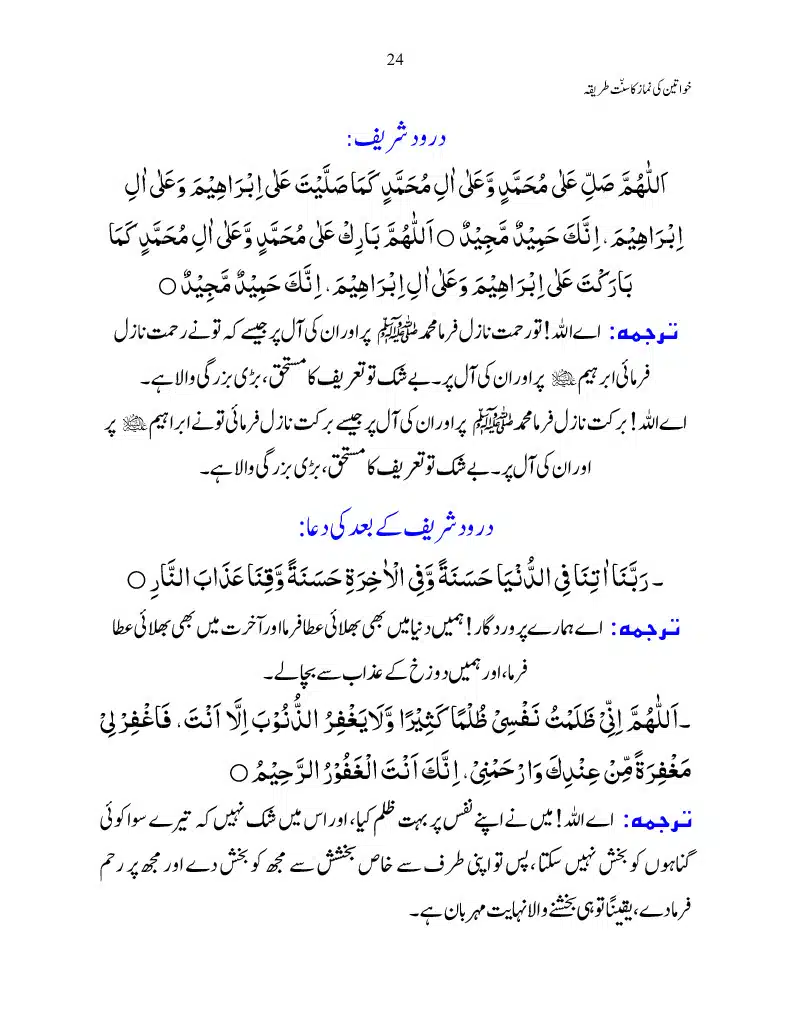 24
خواتین کی نماز کا سنّت طریقہ
درود شریف:
اَللّٰهُمَّ صَلِّ عَلٰى مُحَمَّدٍ وَّعَلٰى اٰلِ مُحَمَّدٍ كَمَا صَلَّيْتَ عَلٰى اِبْرَاهِيْمَ وَعَلٰى اٰلِ
اِبْرَاهِيْمَ، اِنَّكَ حَمِيْدٌ مَّجِيْدٌ ○ اَللّٰهُمَّ بَارِكْ عَلٰى مُحَمَّدٍ وَّعَلٰى اٰلِ مُحَمَّدٍ كَمَا
بَارَكْتَ عَلٰى اِبْرَاهِيْمَ وَعَلٰى اٰلِ اِبْرَاهِيْمَ، اِنَّكَ حَمِيْدٌ مَّجِيْدٌ ○
ترجمہ: اے اللہ! تو رحمت نازل فرما محمد ﷺ پر اور ان کی آل پر جیسے کہ تو نے رحمت نازل
فرمائی ابرہیم ؑ پر اور ان کی آل پر۔ بے شک تو تعریف کا مستحق، بڑی بزرگی والا ہے۔
اے اللہ! برکت نازل فرما محمد ﷺ پر اور ان کی آل پر جیسے برکت نازل فرمائی تو نے ابراہیم ؑ پر
اور ان کی آل پر۔ بے شک تو تعریف کا مستحق، بڑی بزرگی والا ہے۔
درود شریف کے بعد کی دعا:
۔ رَبَّنَا اٰتِنَا فِي الدُّنْيَا حَسَنَةً وَّفِي الْاٰخِرَةِ حَسَنَةً وَّقِنَا عَذَابَ النَّارِ ○
ترجمہ: اے ہمارے پروردگار! ہمیں دنیا میں بھی بھلائی عطا فرما اور آخرت میں بھی بھلائی عطا
فرما، اور ہمیں دوزخ کے عذاب سے بچا لے۔
۔اَللّٰهُمَّ اِنِّيْ ظَلَمْتُ نَفْسِيْ ظُلْمًا كَثِيْرًا وَّلَا يَغْفِرُ الذُّنُوْبَ اِلَّا اَنْتَ، فَاغْفِرْ لِيْ
مَغْفِرَةً مِّنْ عِنْدِكَ وَارْحَمْنِيْ، اِنَّكَ اَنْتَ الْغَفُوْرُ الرَّحِيْمُ ○
ترجمہ: اے اللہ! میں نے اپنے نفس پر بہت ظلم کیا، اور اس میں شک نہیں کہ تیرے سوا کوئی
گناہوں کو بخش نہیں سکتا، پس تو اپنی طرف سے خاص بخشش سے مجھ کو بخش دے اور مجھ پر رحم
فرما دے، یقیناً تو ہی بخشنے والا نہایت مہربان ہے۔